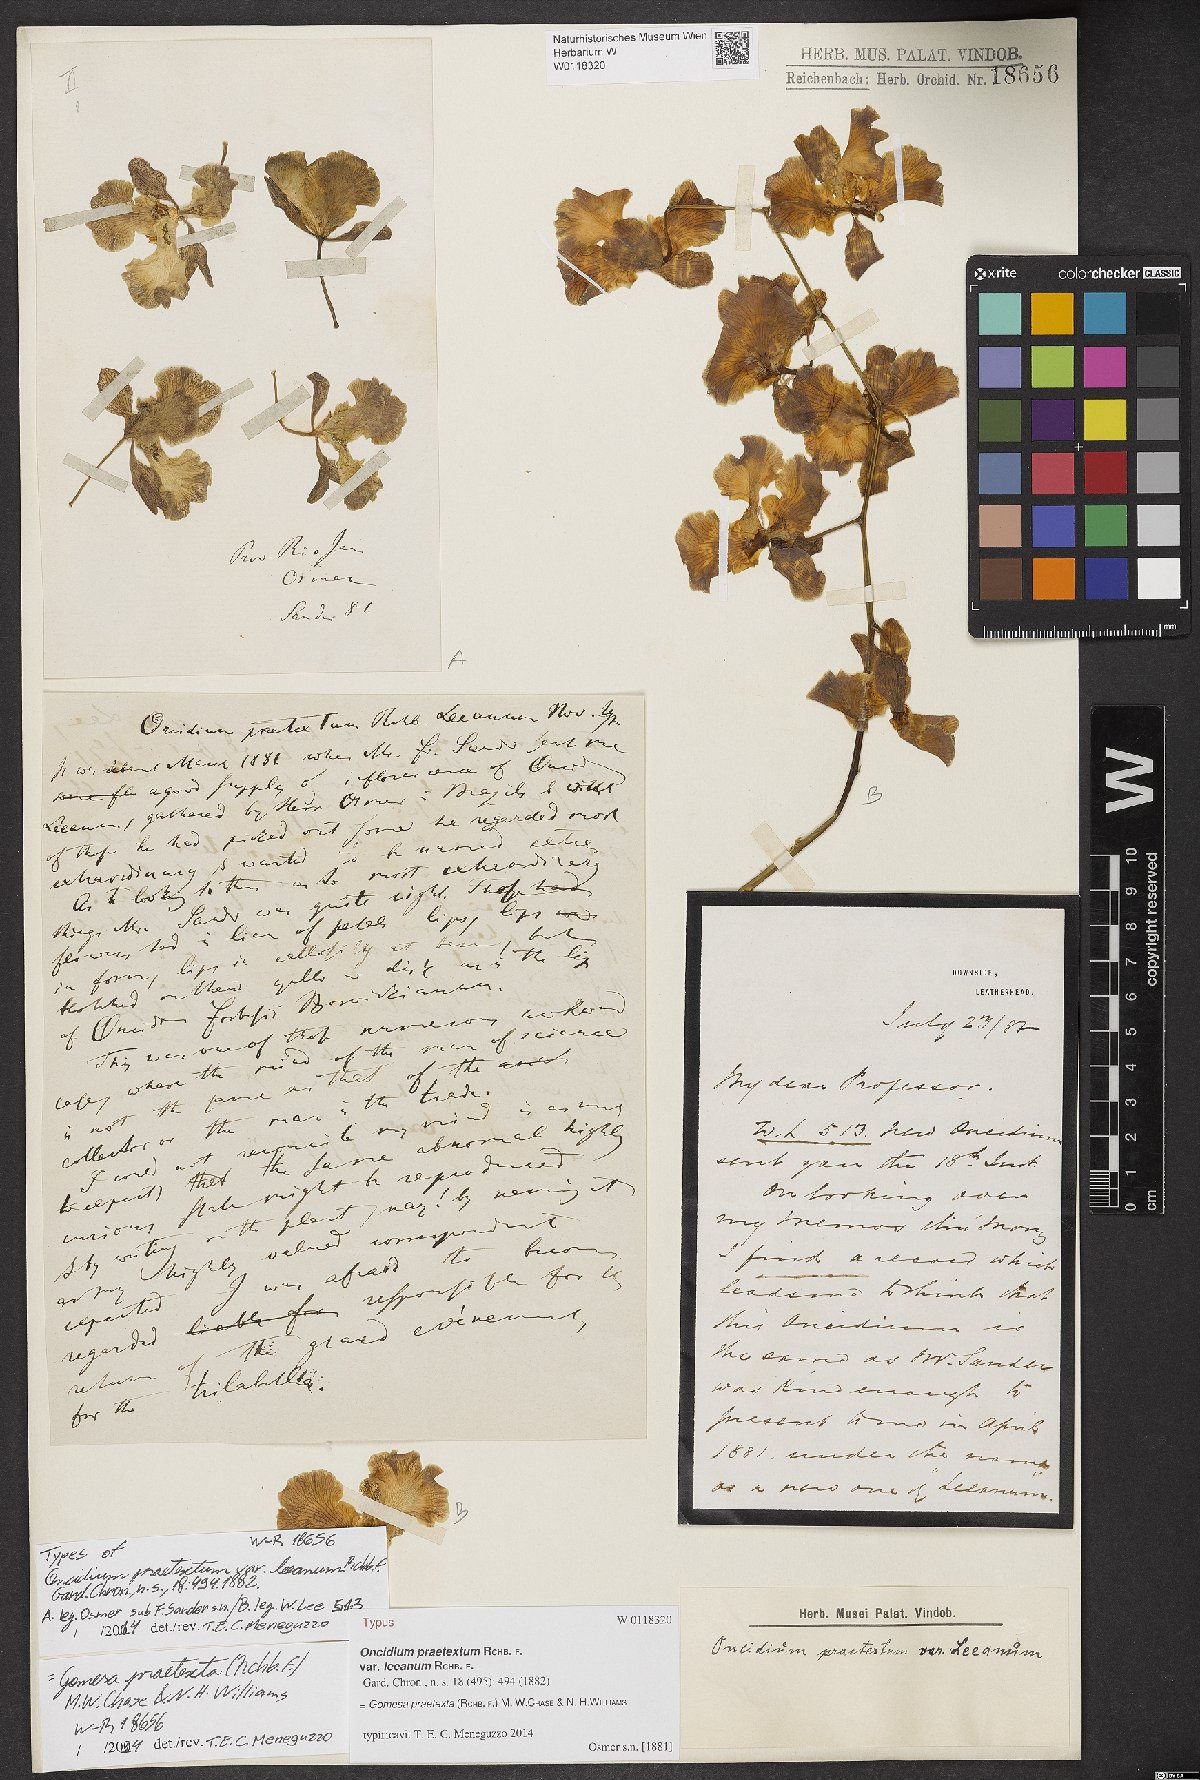 Naturhistorisches Museum Wien
Herbarium W
W0118320
HERB. MUS. PALAT. VINDOB.
Reichenbach: Herb. Orchid. Nr. 18656
II
Prov Rio Jan
Osmer
Sander 81
A
x-rite colorchecker CLASSIC
mm
Oncidium praetextum Rchb Leeanum Nov. Hyp.
March 1881 when Mr. F. Sander sent me
a good supply of inflorescence of Oncid
Leeanum, gathered by Herr Osmer in Brazil &
of these he had picked out some he regarded most
extraordinary & wanted to be named
As to looking to them as to most extraordinary
things Mr. Sander was quite right. These
flowers had in lieu of petals lips, lips
in form, lips in callosity at base, both
blotched on their yellow disk as is the lip
of Oncidium Forbesii Borwickianum.
This was one of those numerous awkward
cases where the mind of the man of science
is not the same as that of the
collector or the man in the trade.
I could not reconcile my mind
to expect that the same abnormal highly
curious state might be reproduced
& by writing on the plant, nay! by naming it
as my highly valued correspondent
expected I was afraid to become
regarded liable for responsible for by
return of the grand événement,
for the trilabellia.
B
DOWNSIDE,
LEATHERHEAD.
July 23/82
My dear Professor.
W.L 513. new Oncidium
sent you the 18th Inst
On looking over
my memos this morng
I find a record which
leads me to think that
this Oncidium is
the same as Mr. Sander
was kind enough to
present to me in April
1881. under the name
as a new one of "Leeanum".
B
Types of W-R 18656
Oncidium praetextum var. leeanum Rchb.f.
Gard. Chron., n.s., 18. 494. 1882.
A. leg. Osmer sub F. Sander s.n. / B. leg. W. Lee 513
/ /2014 det./rev. T.E.C. Meneguzzo
= Gomesa praetexta (Rchb.f.)
M.W. Chase & N.H. Williams
W-R 18656
/ /2014 det/rev. T.E.C. Meneguzzo
Typus W 0118320
Oncidium praetextum RCHB. F.
var. leeanum RCHB. F.
Gard. Chron., n. s. 18 (495): 494 (1882)
= Gomesa praetexta (RCHB. F.) M. W. CHASE & N. H. WILLIAMS
typificavi: T. E. C. Meneguzzo 2014
Osmer s.n. [1881]
Herb. Musei Palat. Vindob.
Oncidium praetextum var. Leeanum
W
0 1 2 3 4 5 6 7 8 9 10
cm
copyright reserved